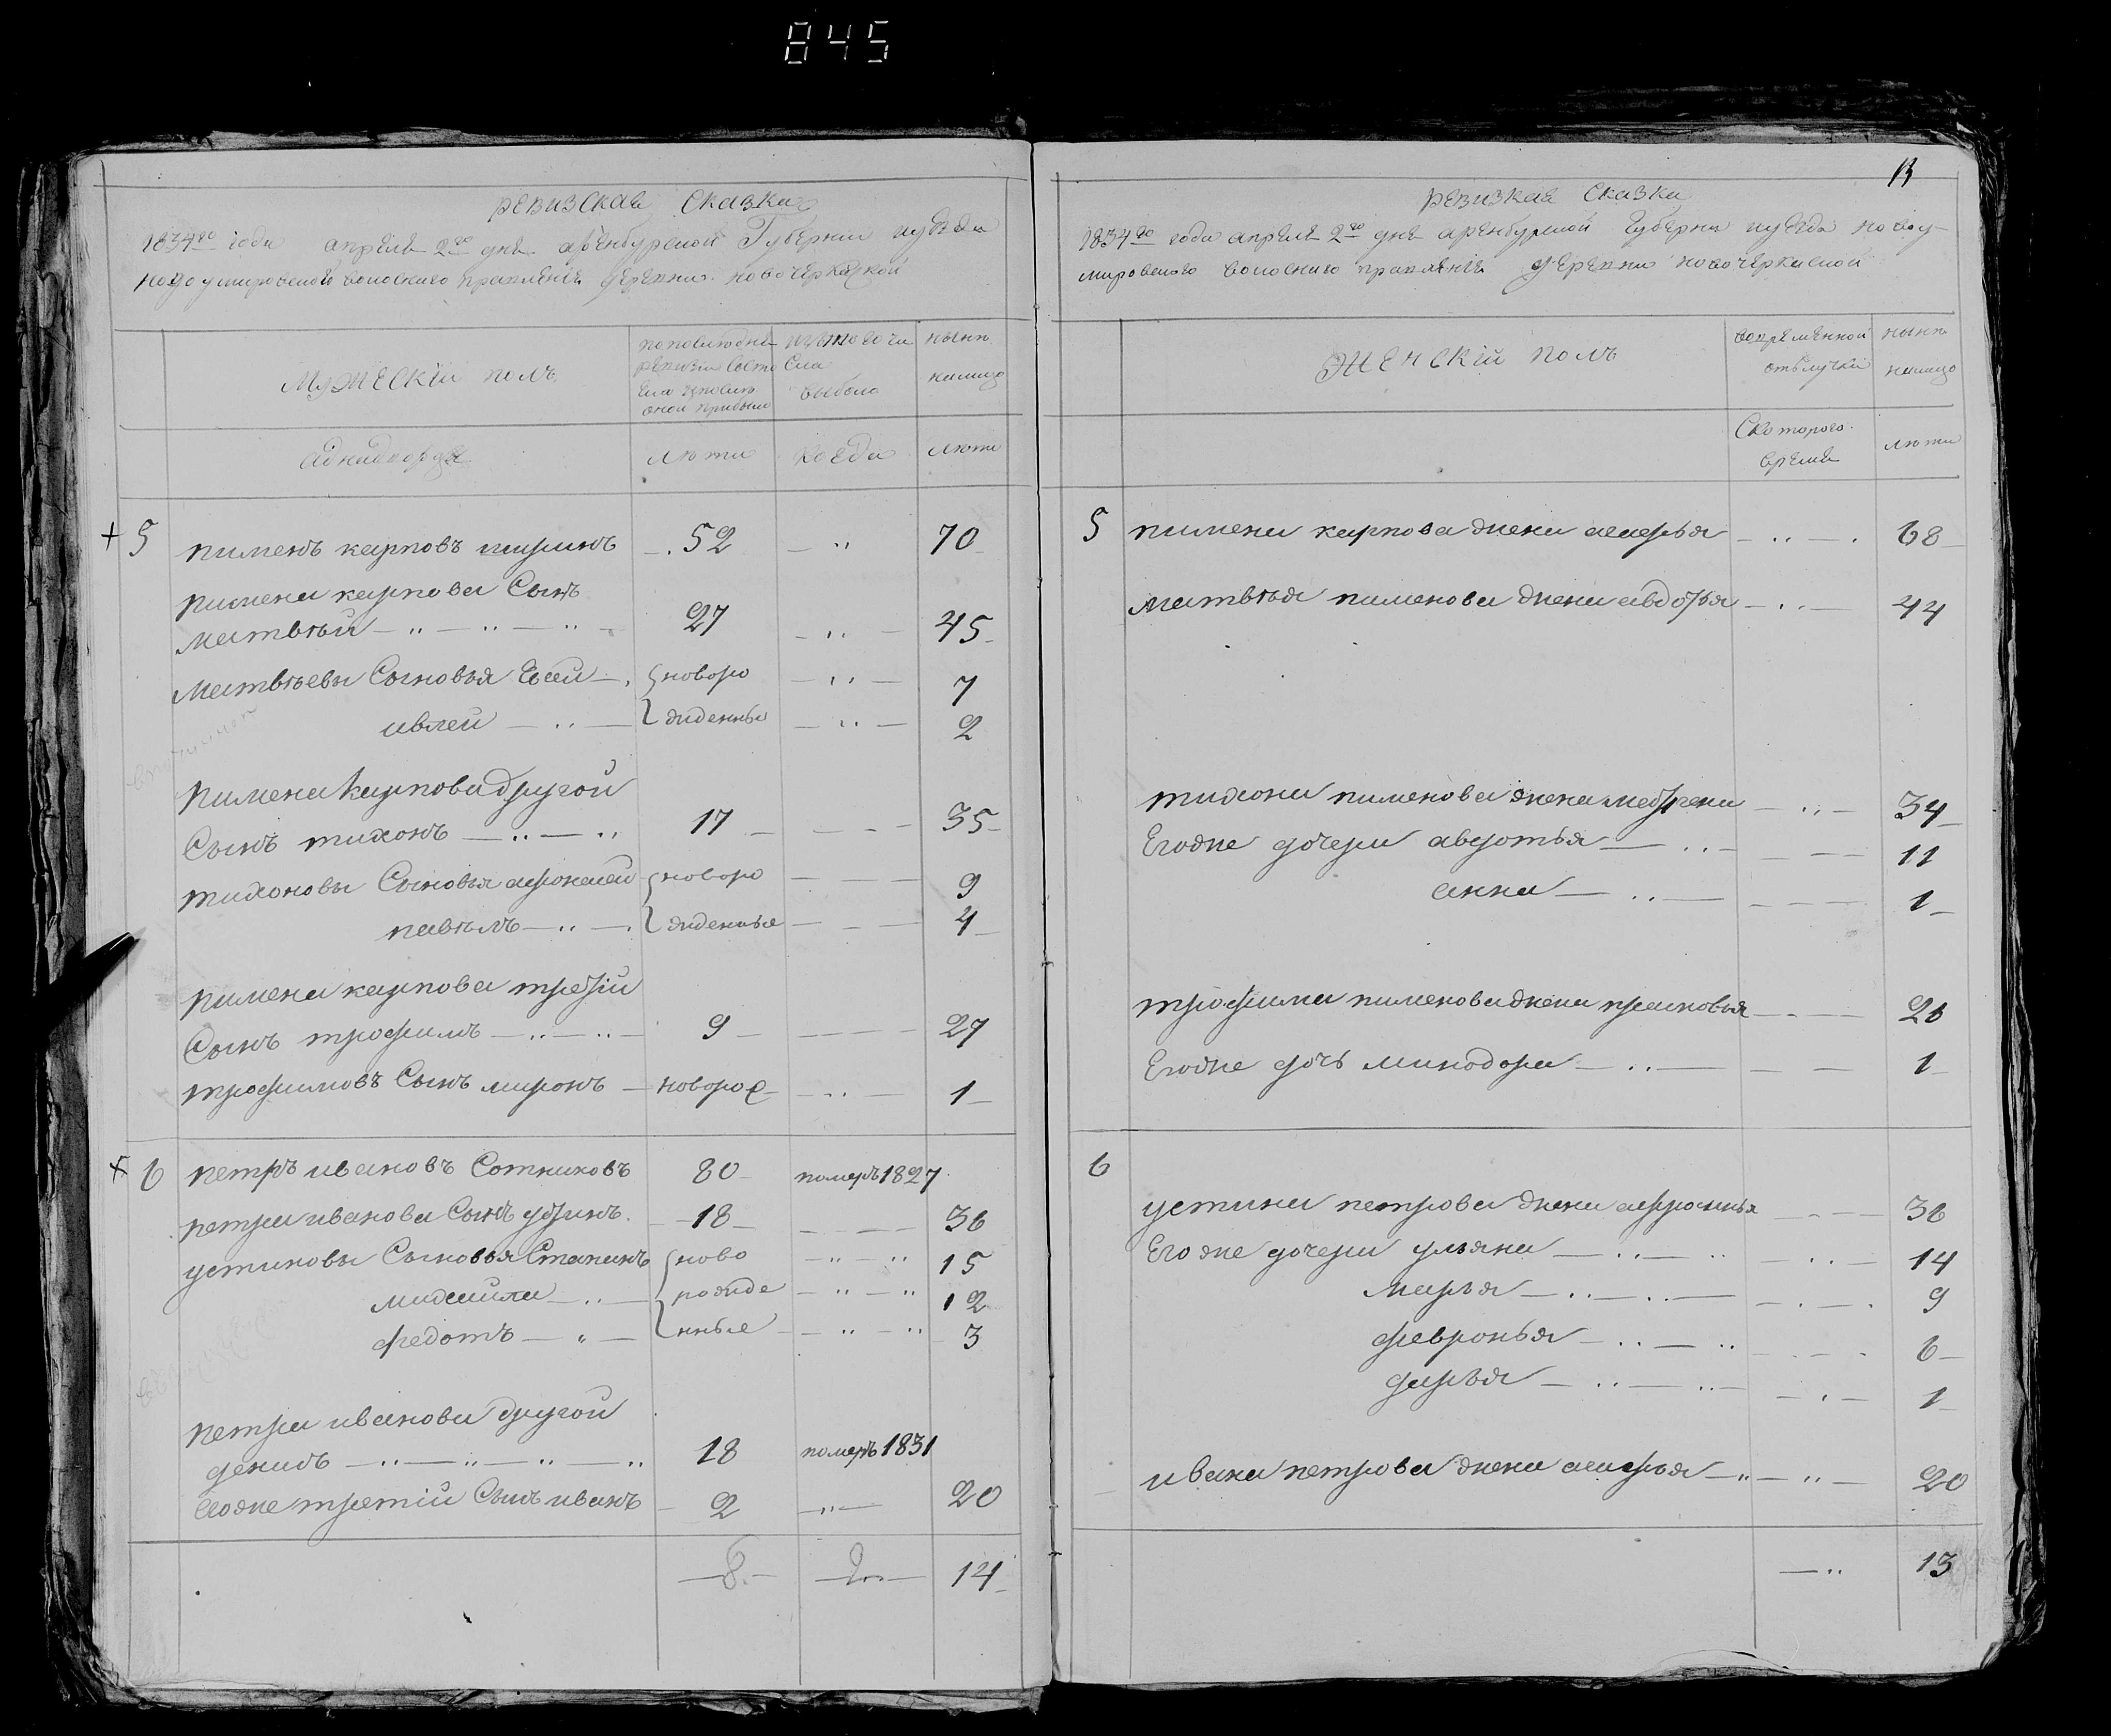 845
ревизская сказка
1834го года апреля 2го дня аренбурской Губернии иуезда
новоумировской волоснаго правления деревни новочеркаской
мужескiй полъ
по последней
ревизии состо
яло и после
оной прибыло
изъ того числа
выбыло
ныне
налицо
аднадворцы
лета
когда
лета
+ 5 пименъ карповъ ширинъ 52 70
пимена карпова сынъ
матвѣй 27 45
матвѣевы сыновья Евсей новоро 7
ивлей жденныя 2
пимена карпова другой
сынъ тихонъ 17 35
тихоновы сыновья афонасей новоро 9
павѣлъ жденныя 4
пимена карпова третiй
сынъ трофимъ 9 27
трофимовъ сынъ миронъ новорож 1
+ 6 петръ ивановъ сотниковъ 80 померъ 1827
петра иванова сынъ устинъ 18 36
устиновы сыновья Степанъ ново 15
михайла рожде 12
федотъ нные 3
петра иванова другой
денисъ 18 померъ 1831
Егоже третiй сынъ иванъ 2 20
8 2 14
13
ревизкая сказка
1834го года апреля 2го дня аренбурской Губерни иуезда новоу-
мировского волоснаго правления деревни новочеркаской
женскiй полъ
вовременной
отълучки
ныне
налицо
Скоторого
время
лета
5 пимена карпова жена марья 68
матвѣя пименова жена авдотья 44
тихона пименова жена матрена 34
Егоже дочери авдотья 11
анна 1
трофима пименова жена прасковья 26
Егоже дочь минодора 1
6
устина петрова жена афросинья 36
Егоже дочери ульяна 14
марья 9
февронья 6
дарья 1
ивана петрова жена марья 20
13